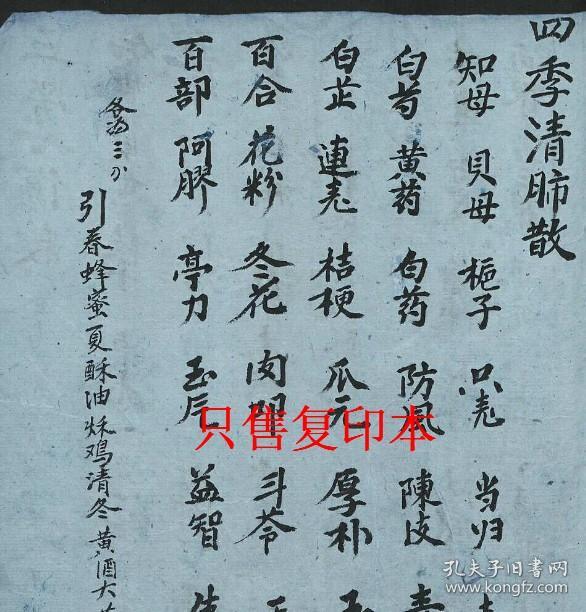 四季清肺散
知母 貝母 栀子 只壳 当归
白芍 黄药 白药 防風 陳皮
白芷 連壳 桔梗 瓜元 厚朴
百合 花粉 冬花 肉 斗苓
百部 阿膠 亭力 玉 益智
各 三分
引春蜂蜜夏酥油秌鸡清冬黄酒大
只售复印本
孔夫子旧书网
www.kongfz.com